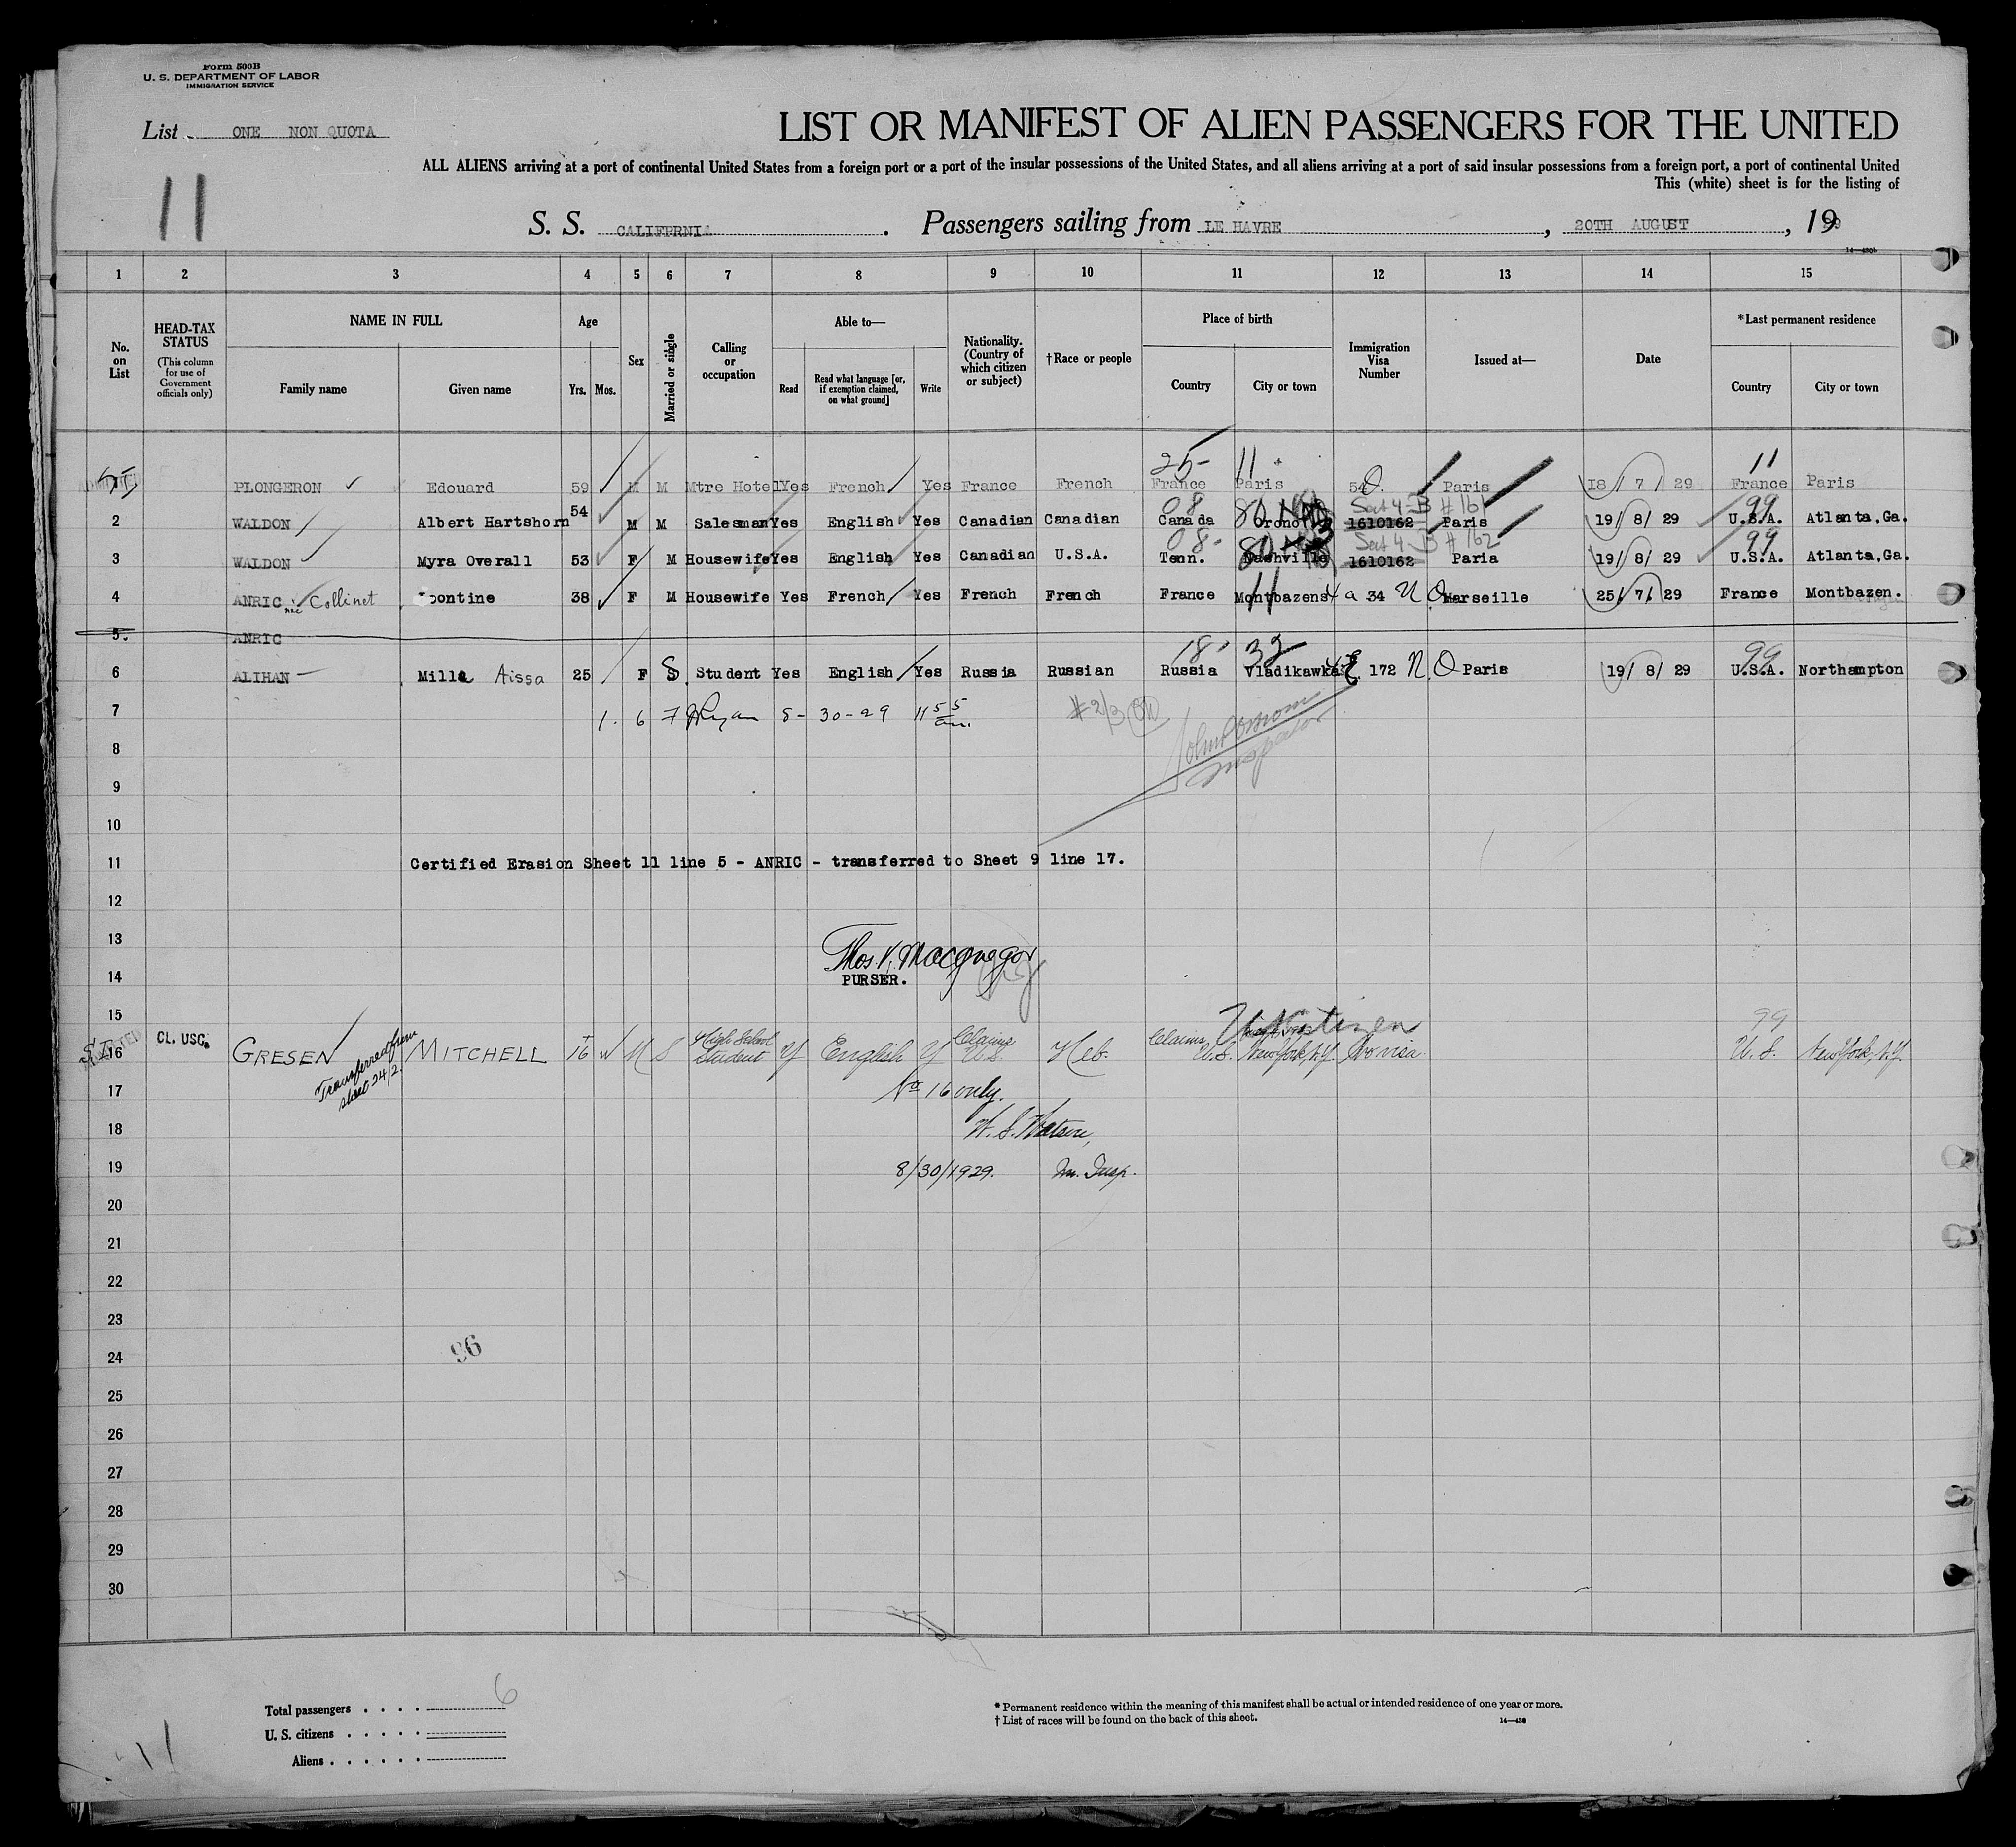 Form 500B
U. S. DEPARTMENT OF LABOR
IMMIGRATION SERVICE
List ONE NON QUOTA
LIST OR MANIFEST OF ALIEN PASSENGERS FOR THE UNITED
ALL ALIENS arriving at a port of continental United States from a foreign port or a port of the insular possessions of the United States, and all aliens arriving at a port of said insular possessions from a foreign port, a port of continental United
This (white) sheet is for the listing of
11
S. S. CALIFPRNIA. Passengers sailing from LE HAVRE, 20TH AUGUST, 19
1 2 3 4 5 6 7 8 9 10 11 12 13 14 15
No. on List
HEAD-TAX STATUS
(This column for use of Government officials only)
NAME IN FULL
Family name Given name
Age
Yrs. Mos.
Sex
Married or single
Calling or occupation
Able to—
Read
Read what language [or, if exemption claimed, on what ground]
Write
Nationality. (Country of which citizen or subject)
†Race or people
Place of birth
Country City or town
Immigration Visa Number
Issued at—
Date
*Last permanent residence
Country City or town
25- 11 11
PLONGERON Edouard 59 M M Mtre Hotel Yes French Yes France French France Paris Paris 18/ 7/ 29 France Paris
08 80 Sect 4-B #161 99
2 WALDON Albert Hartshorn 54 M M Salesman Yes English Yes Canadian Canadian Canada Orono 1610162 Paris 19/ 8/ 29 U.S.A. Atlanta,Ga.
08- 80 Sect 4-B #162 99
3 WALDON Myra Overall 53 F M Housewife Yes English Yes Canadian U.S.A. Tenn. Nashville 1610162 Paria 19/ 8/ 29 U.S.A. Atlanta,Ga.
4 ANRIC nee Collinet oontine 38 F M Housewife Yes French Yes French French France Montbazens 11 34 Marseille 25/ 7/ 29 France Montbazen.
5. ANRIC
18- 32 99
6 ALIHAN Milla Aissa 25 F S Student Yes English Yes Russia Russian Russia Vladikawkaz 172 N.O Paris 19/ 8/ 29 U.S.A. Northampton
7 1. 6 F Ryan 8-30-29 11 55 am.
8
Inspector
9
10
11 Certified Erasion Sheet 11 line 5 - ANRIC - transferred to Sheet 9 line 17.
12
13 Thos V. Macgregor
14 PURSER.
15 US Citizen 99
16 CL. USC. GRESEN MITCHELL 16 M S High School Student Y English Y Claims U.S. Heb. Claims U.S. New York, N.Y. U.S. New York, N.Y.
Transferred from sheet 24/2.
17 No 16 only.
18 W. S. Watson,
19 8/30/1929. Im. Insp.
20
21
22
23
24 96
25
26
27
28
29
30
Total passengers . . . . 6
U. S. citizens . . . . .
Aliens . . . . . .
* Permanent residence within the meaning of this manifest shall be actual or intended residence of one year or more.
† List of races will be found on the back of this sheet.
14—430
11